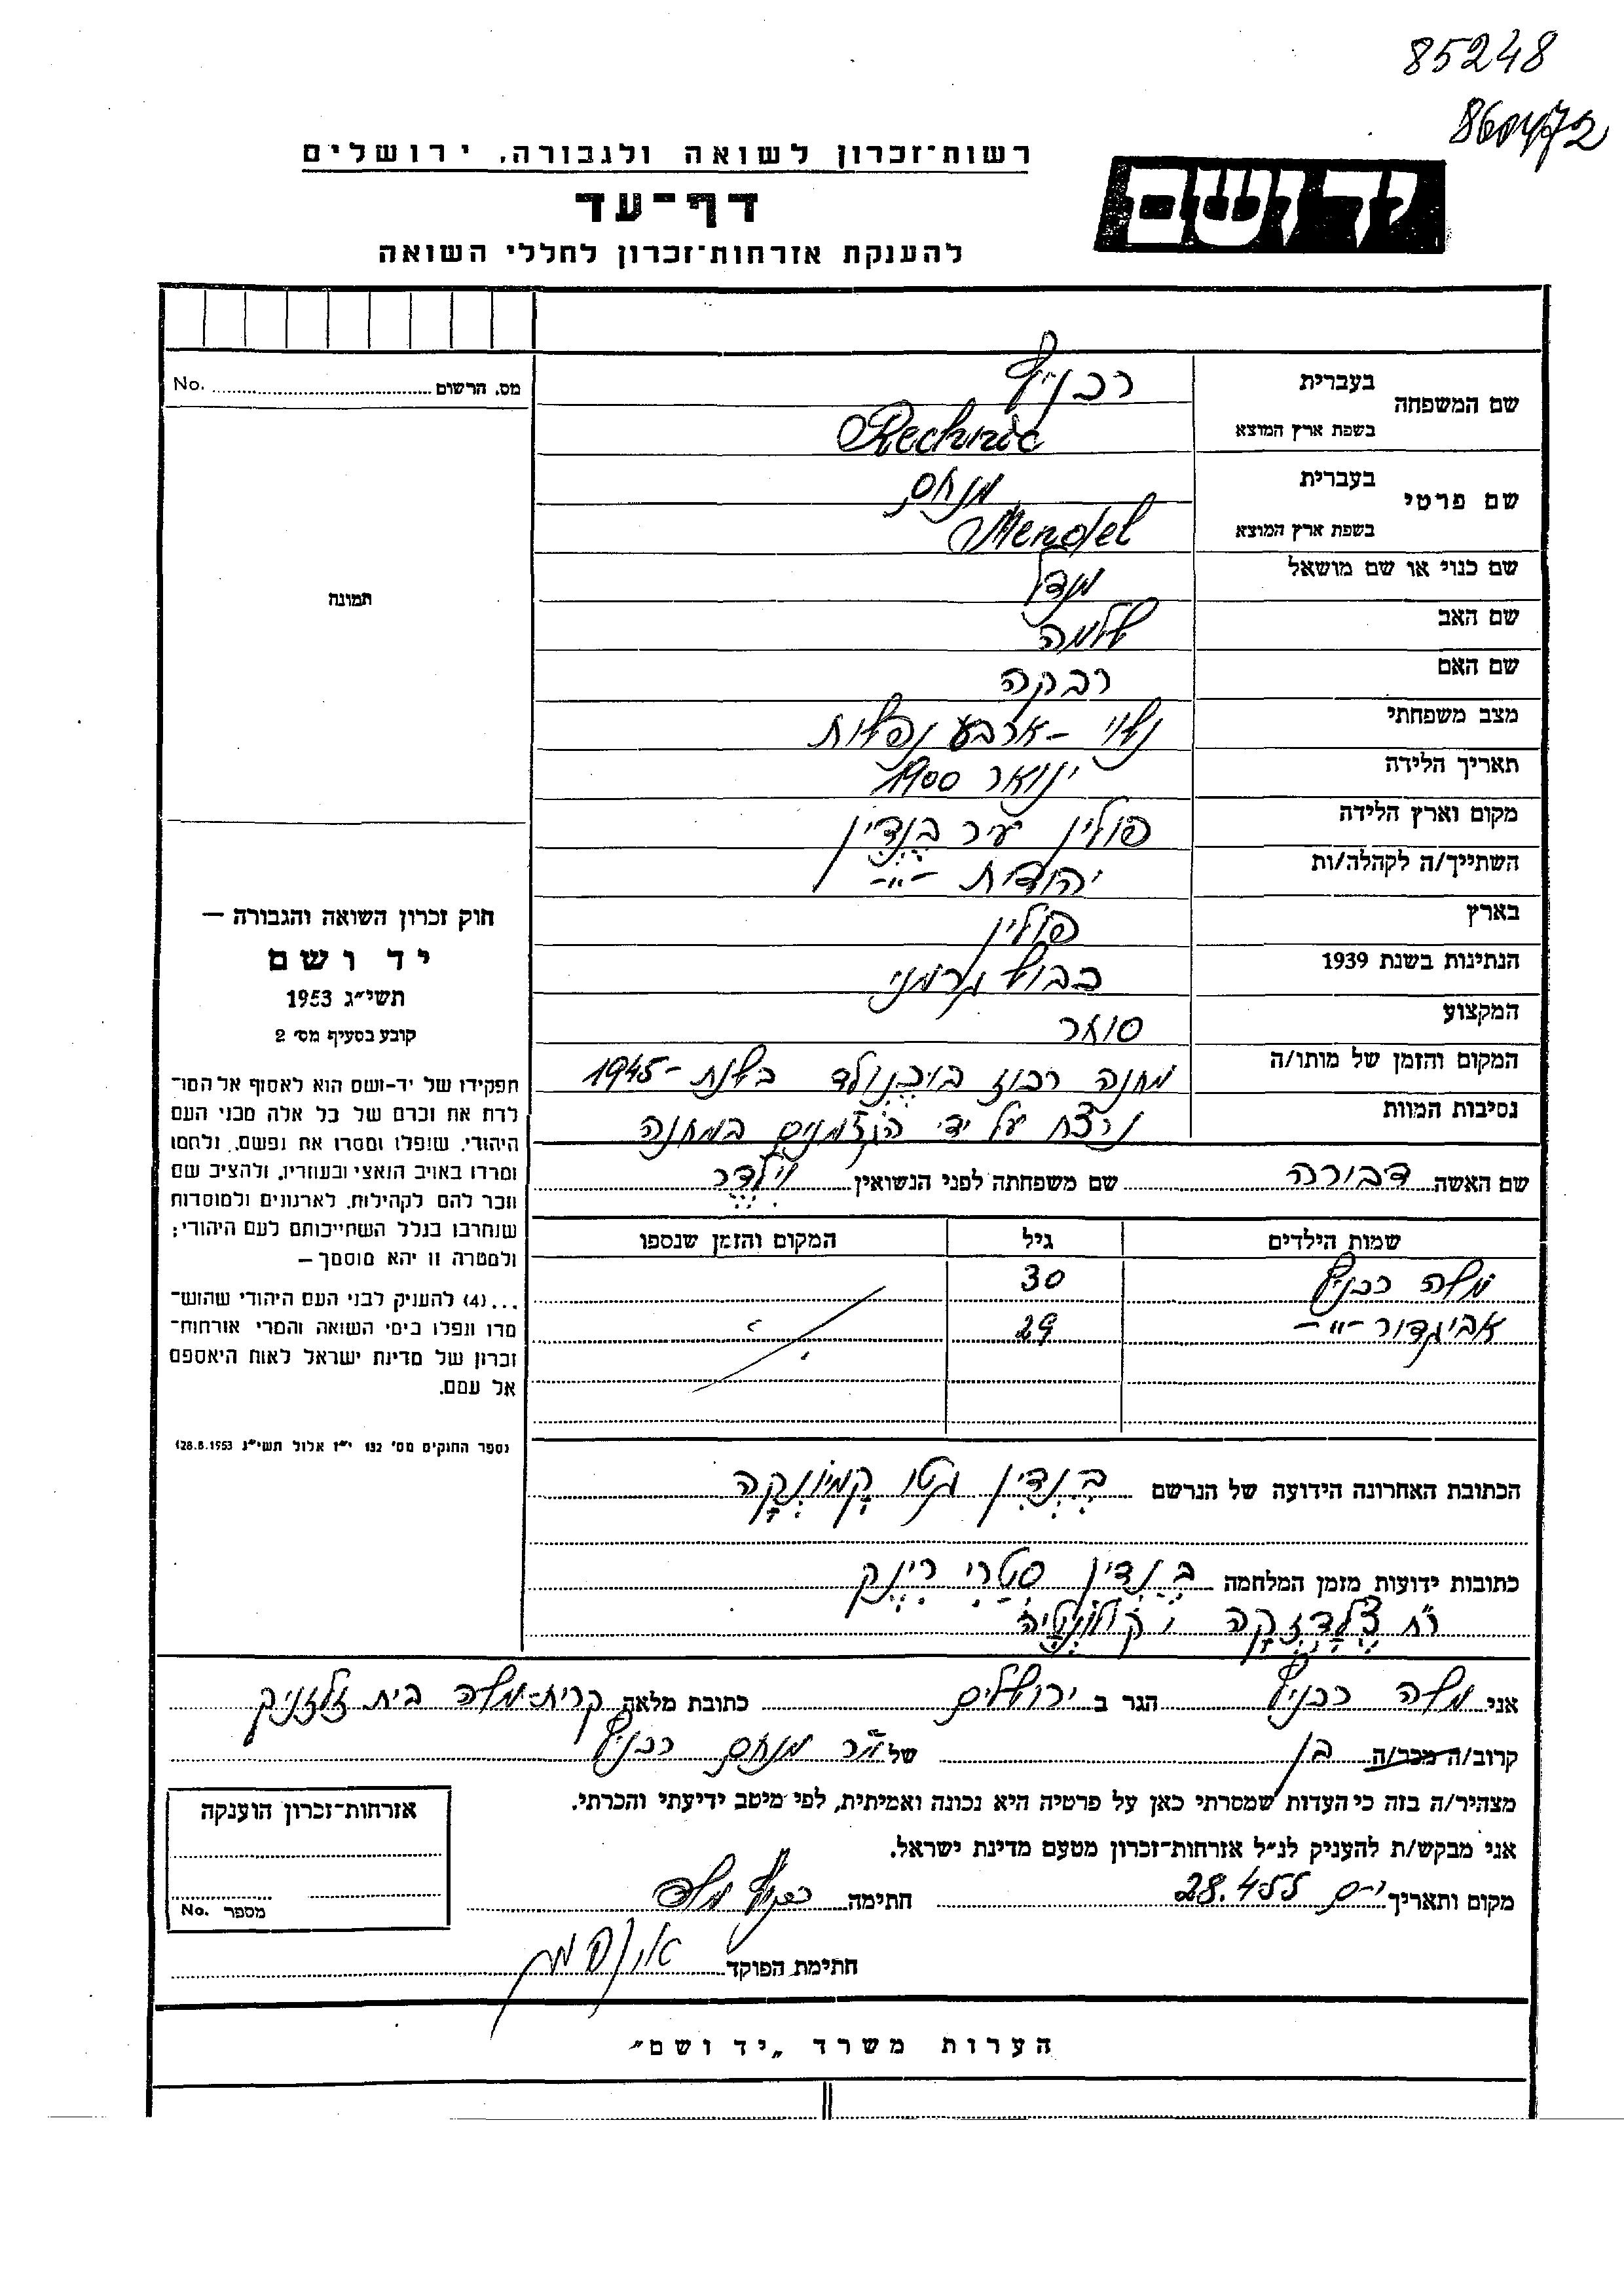 85248
860472
רשות־זכרון לשואה ולגבורה, ירושלים
יד ושם
דף־עד
להענקת אזרחות־זכרון לחללי השואה
מס. הרשום No.
תמונה
שם המשפחה בעברית רכניץ
בשפת ארץ המוצא Rechnic
שם פרטי בעברית מנחם
בשפת ארץ המוצא Mendel
שם כנוי או שם מושאל מנדל
שם האב שלמה
שם האם רבקה
מצב משפחתי נשוי - ארבע נפשות
תאריך הלידה ינואר 1900
מקום וארץ הלידה פולין עיר בנדין
השתייך/ה לקהלה/ות יהודית -"-
בארץ פולין
הנתינות בשנת 1939 כבוש גרמני
המקצוע סוחר
המקום והזמן של מותו/ה מחנה רכוז בוכנולד בשנת - 1945
נסיבות המוות נרצח על ידי הגרמנים במחנה
שם האשה דבורה שם משפחתה לפני הנשואין וילדר
שמות הילדים גיל המקום והזמן שנספו
משה רכניץ 30
אביגדור -"- 29
הכתובת האחרונה הידועה של הנרשם בנדין גטו קמיונקה
כתובות ידועות מזמן המלחמה בנדין סטרי רינק
רח
חוק זכרון השואה והגבורה —
יד ושם
תשי״ג 1953
קובע בסעיף מס׳ 2
תפקידו של יד-ושם הוא לאסוף אל המו־
לדת את זכרם של כל אלה מבני העם
היהודי, שנפלו ומסרו את נפשם, נלחמו
ומרדו באויב הנאצי ובעוזריו, ולהציב שם
וזכר להם לקהילות, לארגונים ולמוסדות
שנחרבו בגלל השתייכותם לעם היהודי;
ולמטרה זו יהא מוסמך —
...(4) להעניק לבני העם היהודי שהוש־
מדו ונפלו בימי השואה והמרי אזרחות־
זכרון של מדינת ישראל לאות היאספם
אל עמם.
(ספר החוקים מס׳ 132 י״ז אלול תשי״ג 28.8.1953)
אני משה רכניץ הגר ב ירושלים כתובת מלאה קרית-משה בית זלזניק
קרוב/ה מכר/ה בן של מר מנחם רכניץ
מצהיר/ה בזה כי העדות שמסרתי כאן על פרטיה היא נכונה ואמיתית, לפי מיטב ידיעתי והכרתי.
אני מבקש/ת להעניק לנ״ל אזרחות־זכרון מטעם מדינת ישראל.
מקום ותאריך י-ם 28.4.55 חתימה רכניץ משה
חתימת הפוקד
אזרחות־זכרון הוענקה
מספר No.
הערות משרד „יד ושם״